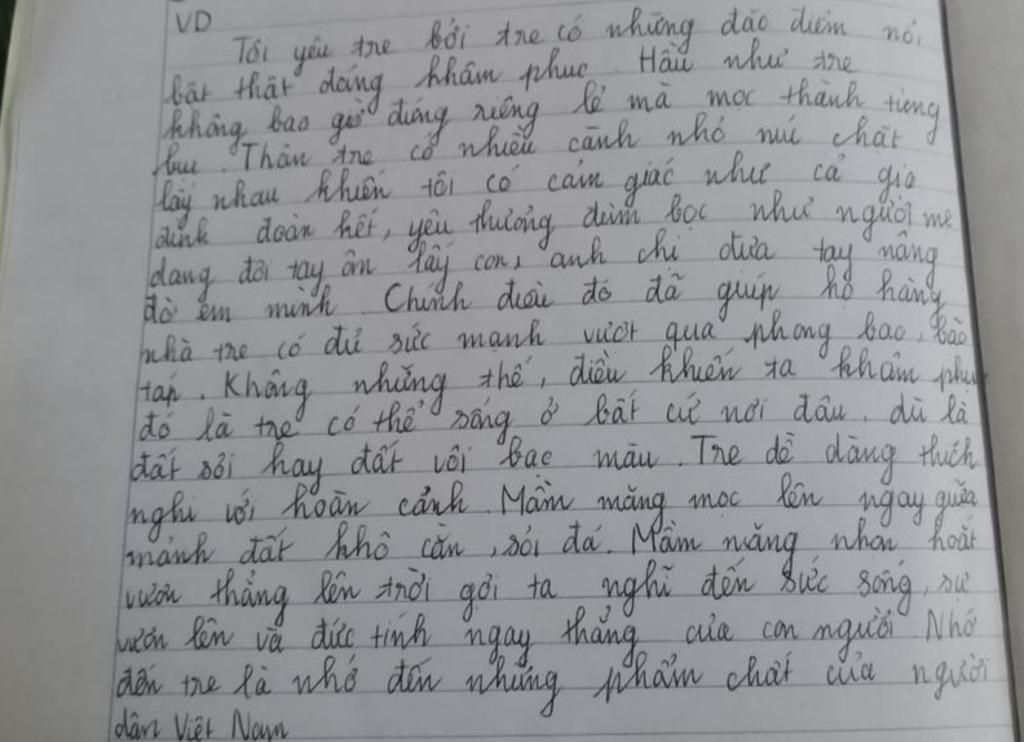 VD
Tôi yêu tre bởi tre có những đặc điểm nổi
bật thật đáng khâm phục. Hầu như tre
không bao giờ đứng riêng lẻ mà mọc thành từng
bụi. Thân tre có nhiều cành nhỏ níu chặt
lấy nhau khiến tôi có cảm giác như cả gia
đình đoàn kết, yêu thương đùm bọc như người mẹ
dang đôi tay ôm lấy con, anh chị đưa tay nâng
đỡ em mình. Chính điều đó đã giúp họ hàng
nhà tre có đủ sức mạnh vượt qua phong bao, bão
táp. Không những thế, điều khiến ta khâm phục
đó là tre có thể sống ở bất cứ nơi đâu. dù là
đất sỏi hay đất vôi bạc màu. Tre dễ dàng thích
nghi với hoàn cảnh. Mầm măng mọc lên ngay giữa
mảnh đất khô cằn, sỏi đá. Mầm măng nhọn hoắt
vươn thẳng lên trời gợi ta nghĩ đến sức sống, sự
vươn lên và đức tính ngay thẳng của con người. Nhớ
đến tre là nhớ đến những phẩm chất của người
dân Việt Nam